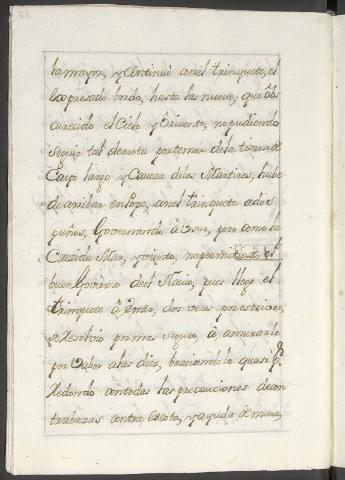 la mayor, y Continué con el trinquete, el
Expresado bordo, hasta las nueve; que obs
curecido el Cielo y Orizonte, no pudiendo
Seguir tal derrota por temor de la tierra de
Cayo largo y Caveza de los Martires, hube
de arribar en Popa, con el trinquete a dos
puños, Governando à Osur, pero como la
Crecida Mar, y viento, no permitiese el
buen Govierno del Navio, pues llego el
trinquete à tomar dos veces por estrivor,
se Resolvio por mas Seguro, à amurarlo
por Vabor a las diez, braceandolo quasi
Redondo con todas las precauciones de con
trabrazas contra Escota, y ayuda de mura,